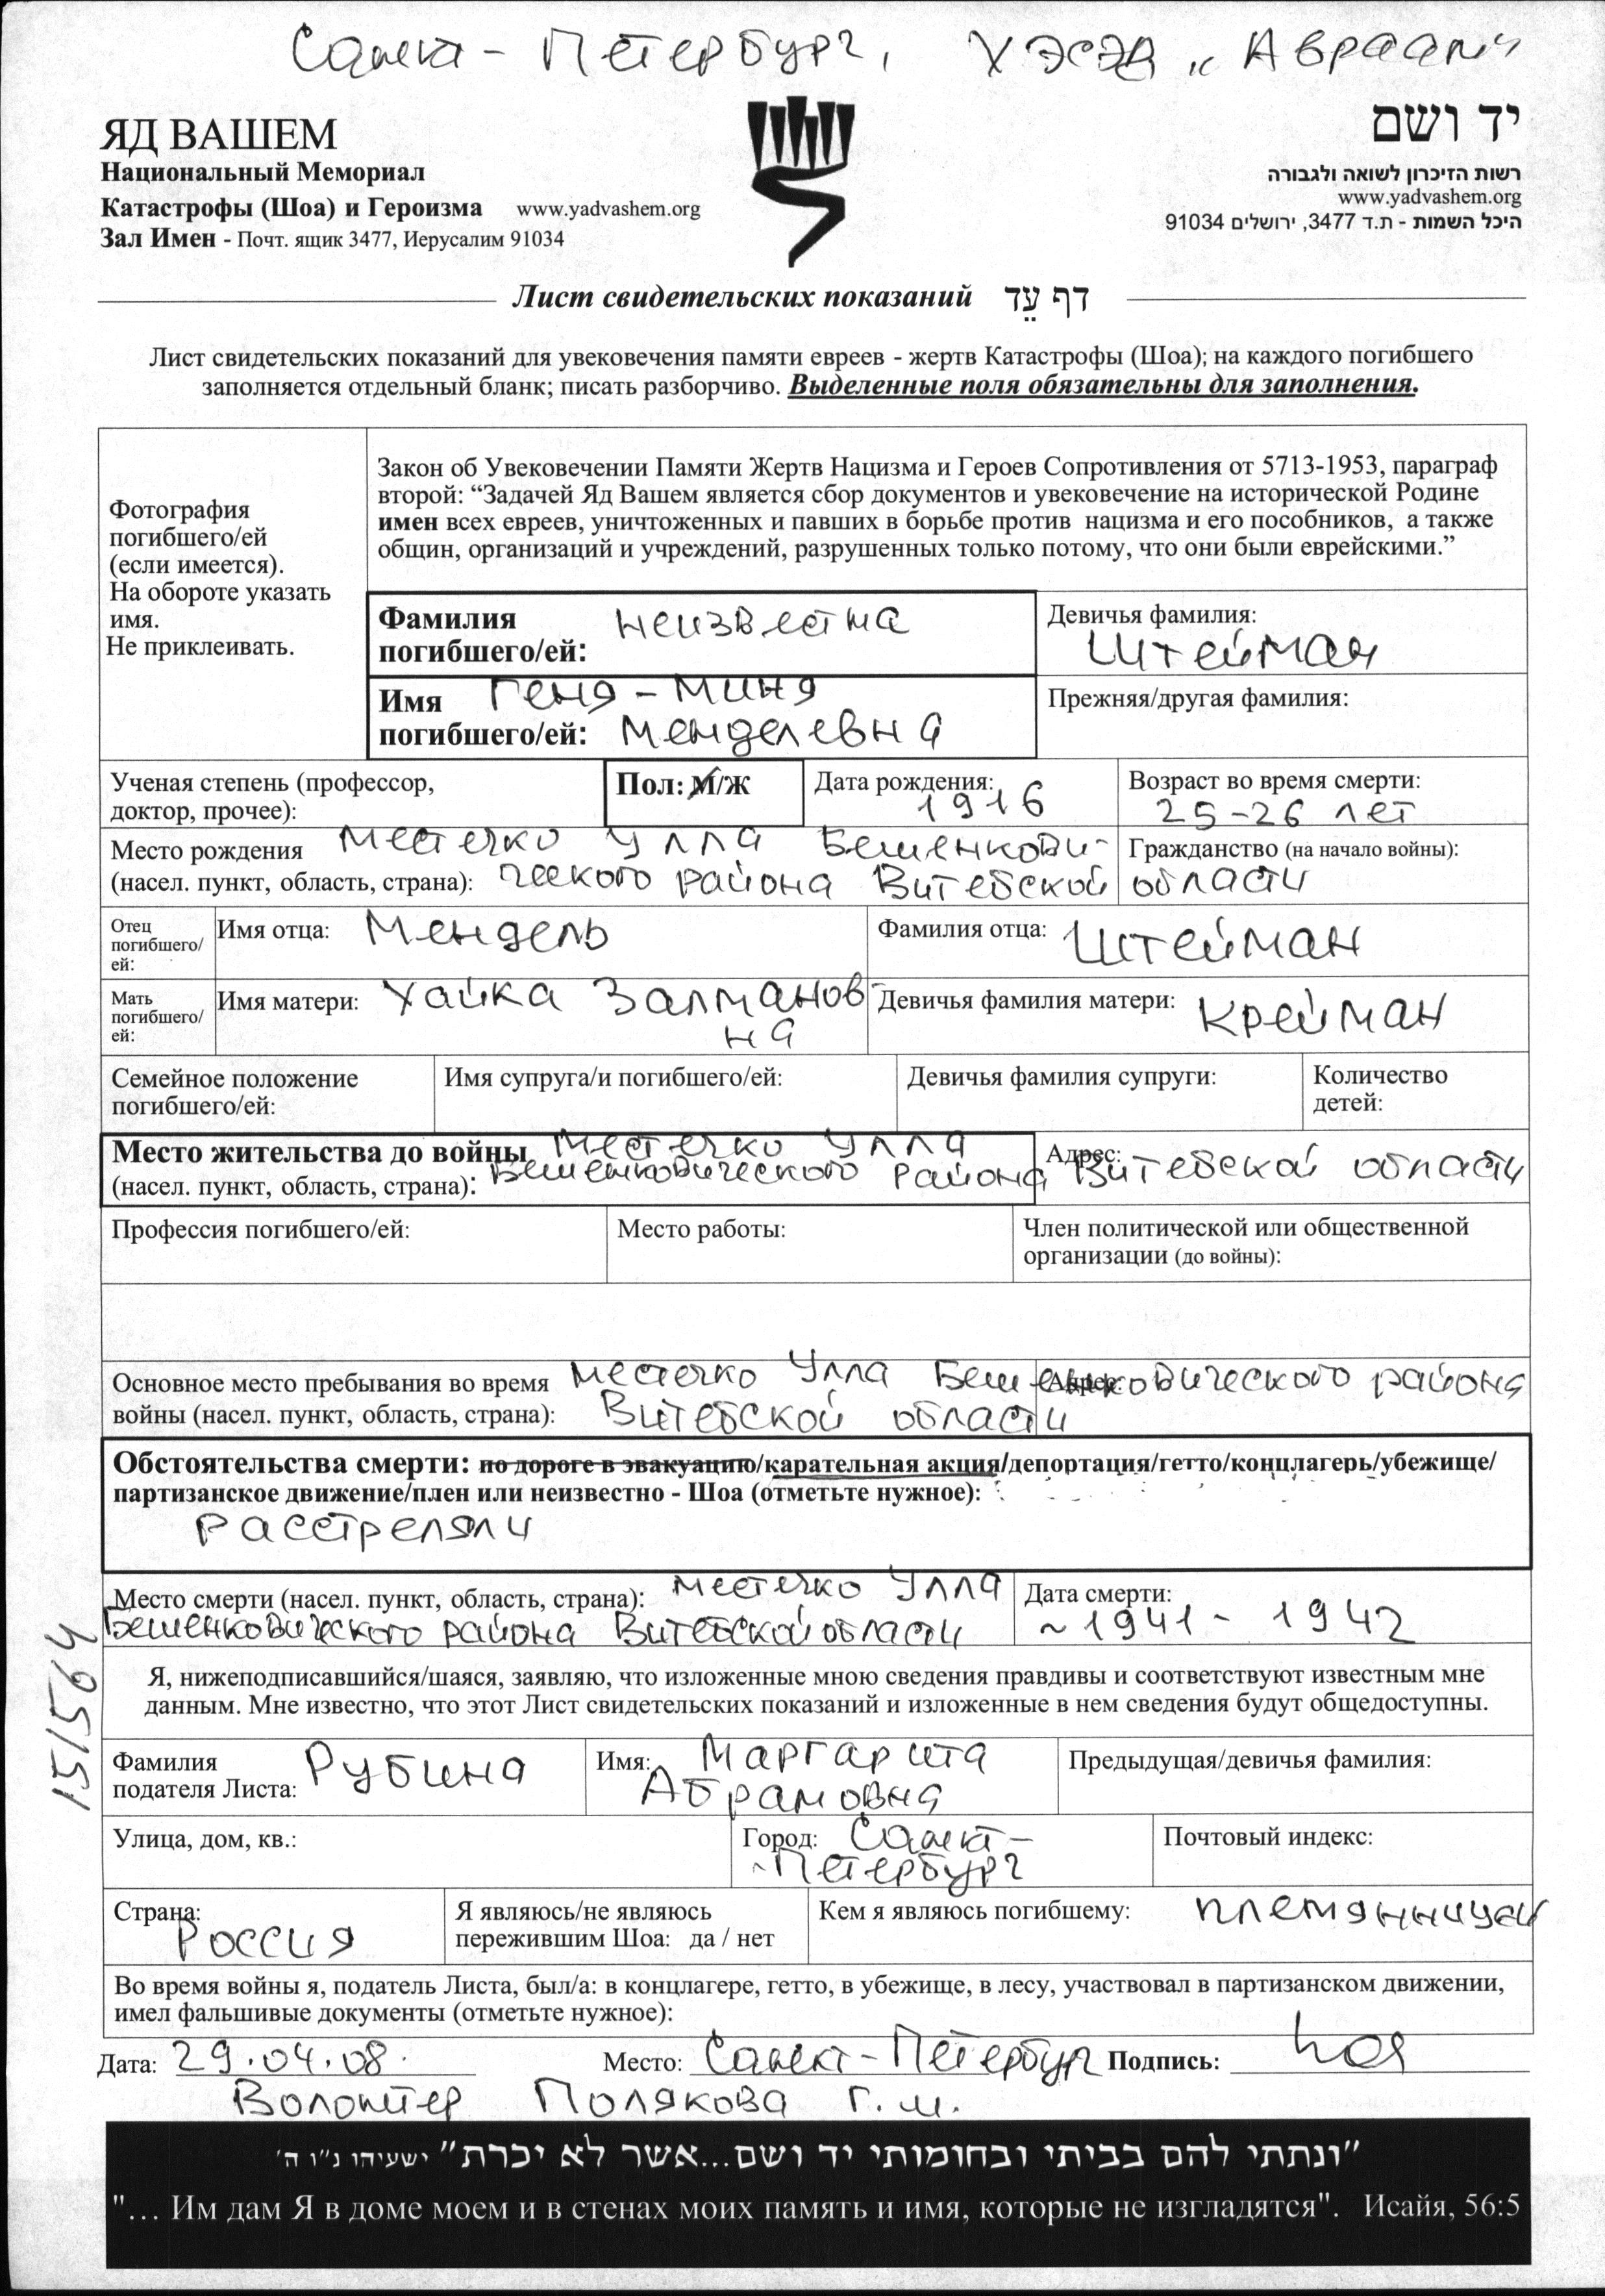 Санкт-Петербург, ХЭСЭД „Авраам"
ЯД ВАШЕМ
Национальный Мемориал
Катастрофы (Шоа) и Героизма www.yadvashem.org
Зал Имен - Почт. ящик 3477, Иерусалим 91034
יד ושם
רשות הזיכרון לשואה ולגבורה
www.yadvashem.org
היכל השמות - ת.ד 3477, ירושלים 91034
Лист свидетельских показаний דף עֵד
Лист свидетельских показаний для увековечения памяти евреев - жертв Катастрофы (Шоа); на каждого погибшего
заполняется отдельный бланк; писать разборчиво. Выделенные поля обязательны для заполнения.
Фотография
погибшего/ей
(если имеется).
На обороте указать
имя.
Не приклеивать.
Закон об Увековечении Памяти Жертв Нацизма и Героев Сопротивления от 5713-1953, параграф
второй: “Задачей Яд Вашем является сбор документов и увековечение на исторической Родине
имен всех евреев, уничтоженных и павших в борьбе против нацизма и его пособников, а также
общин, организаций и учреждений, разрушенных только потому, что они были еврейскими.”
Фамилия
погибшего/ей: неизвестна
Девичья фамилия:
Штейман
Имя Геня-Миня
погибшего/ей: Менделевна
Прежняя/другая фамилия:
Ученая степень (профессор,
доктор, прочее):
Пол: М/Ж
Дата рождения:
1916
Возраст во время смерти:
25-26 лет
Место рождения местечко Улла Бешенкови-
(насел. пункт, область, страна): ческого района Витебской области
Гражданство (на начало войны):
Отец
погибшего/
ей:
Имя отца: Мендель
Фамилия отца: Штейман
Мать
погибшего/
ей:
Имя матери: Хайка Залманов-
на
Девичья фамилия матери: Крейман
Семейное положение
погибшего/ей:
Имя супруга/и погибшего/ей:
Девичья фамилия супруги:
Количество
детей:
Место жительства до войны местечко Улла
(насел. пункт, область, страна): Бешенковического района
Адрес: Витебской области
Профессия погибшего/ей:
Место работы:
Член политической или общественной
организации (до войны):
Основное место пребывания во время местечко Улла Бешенковического района
войны (насел. пункт, область, страна): Витебской области
Адрес:
Обстоятельства смерти: по дороге в эвакуацию/карательная акция/депортация/гетто/концлагерь/убежище/
партизанское движение/плен или неизвестно - Шоа (отметьте нужное):
Расстреляли
Место смерти (насел. пункт, область, страна): местечко Улла
Бешенковического района Витебской области
Дата смерти:
~1941-1942
Я, нижеподписавшийся/шаяся, заявляю, что изложенные мною сведения правдивы и соответствуют известным мне
данным. Мне известно, что этот Лист свидетельских показаний и изложенные в нем сведения будут общедоступны.
151564
Фамилия
подателя Листа: Рубина
Имя: Маргарита
Абрамовна
Предыдущая/девичья фамилия:
Улица, дом, кв.:
Город: Санкт-
-Петербург
Почтовый индекс:
Страна:
Россия
Я являюсь/не являюсь
пережившим Шоа: да / нет
Кем я являюсь погибшему: племянницей
Во время войны я, податель Листа, был/а: в концлагере, гетто, в убежище, в лесу, участвовал в партизанском движении,
имел фальшивые документы (отметьте нужное):
Дата: 29.04.08. Место: Санкт-Петербург Подпись:
Волонтер Полякова Г.М.
"ונתתי להם בביתי ובחומותי יד ושם...אשר לא יכרת" ישעיהו נ"ו ה'
"... Им дам Я в доме моем и в стенах моих память и имя, которые не изгладятся". Исайя, 56:5